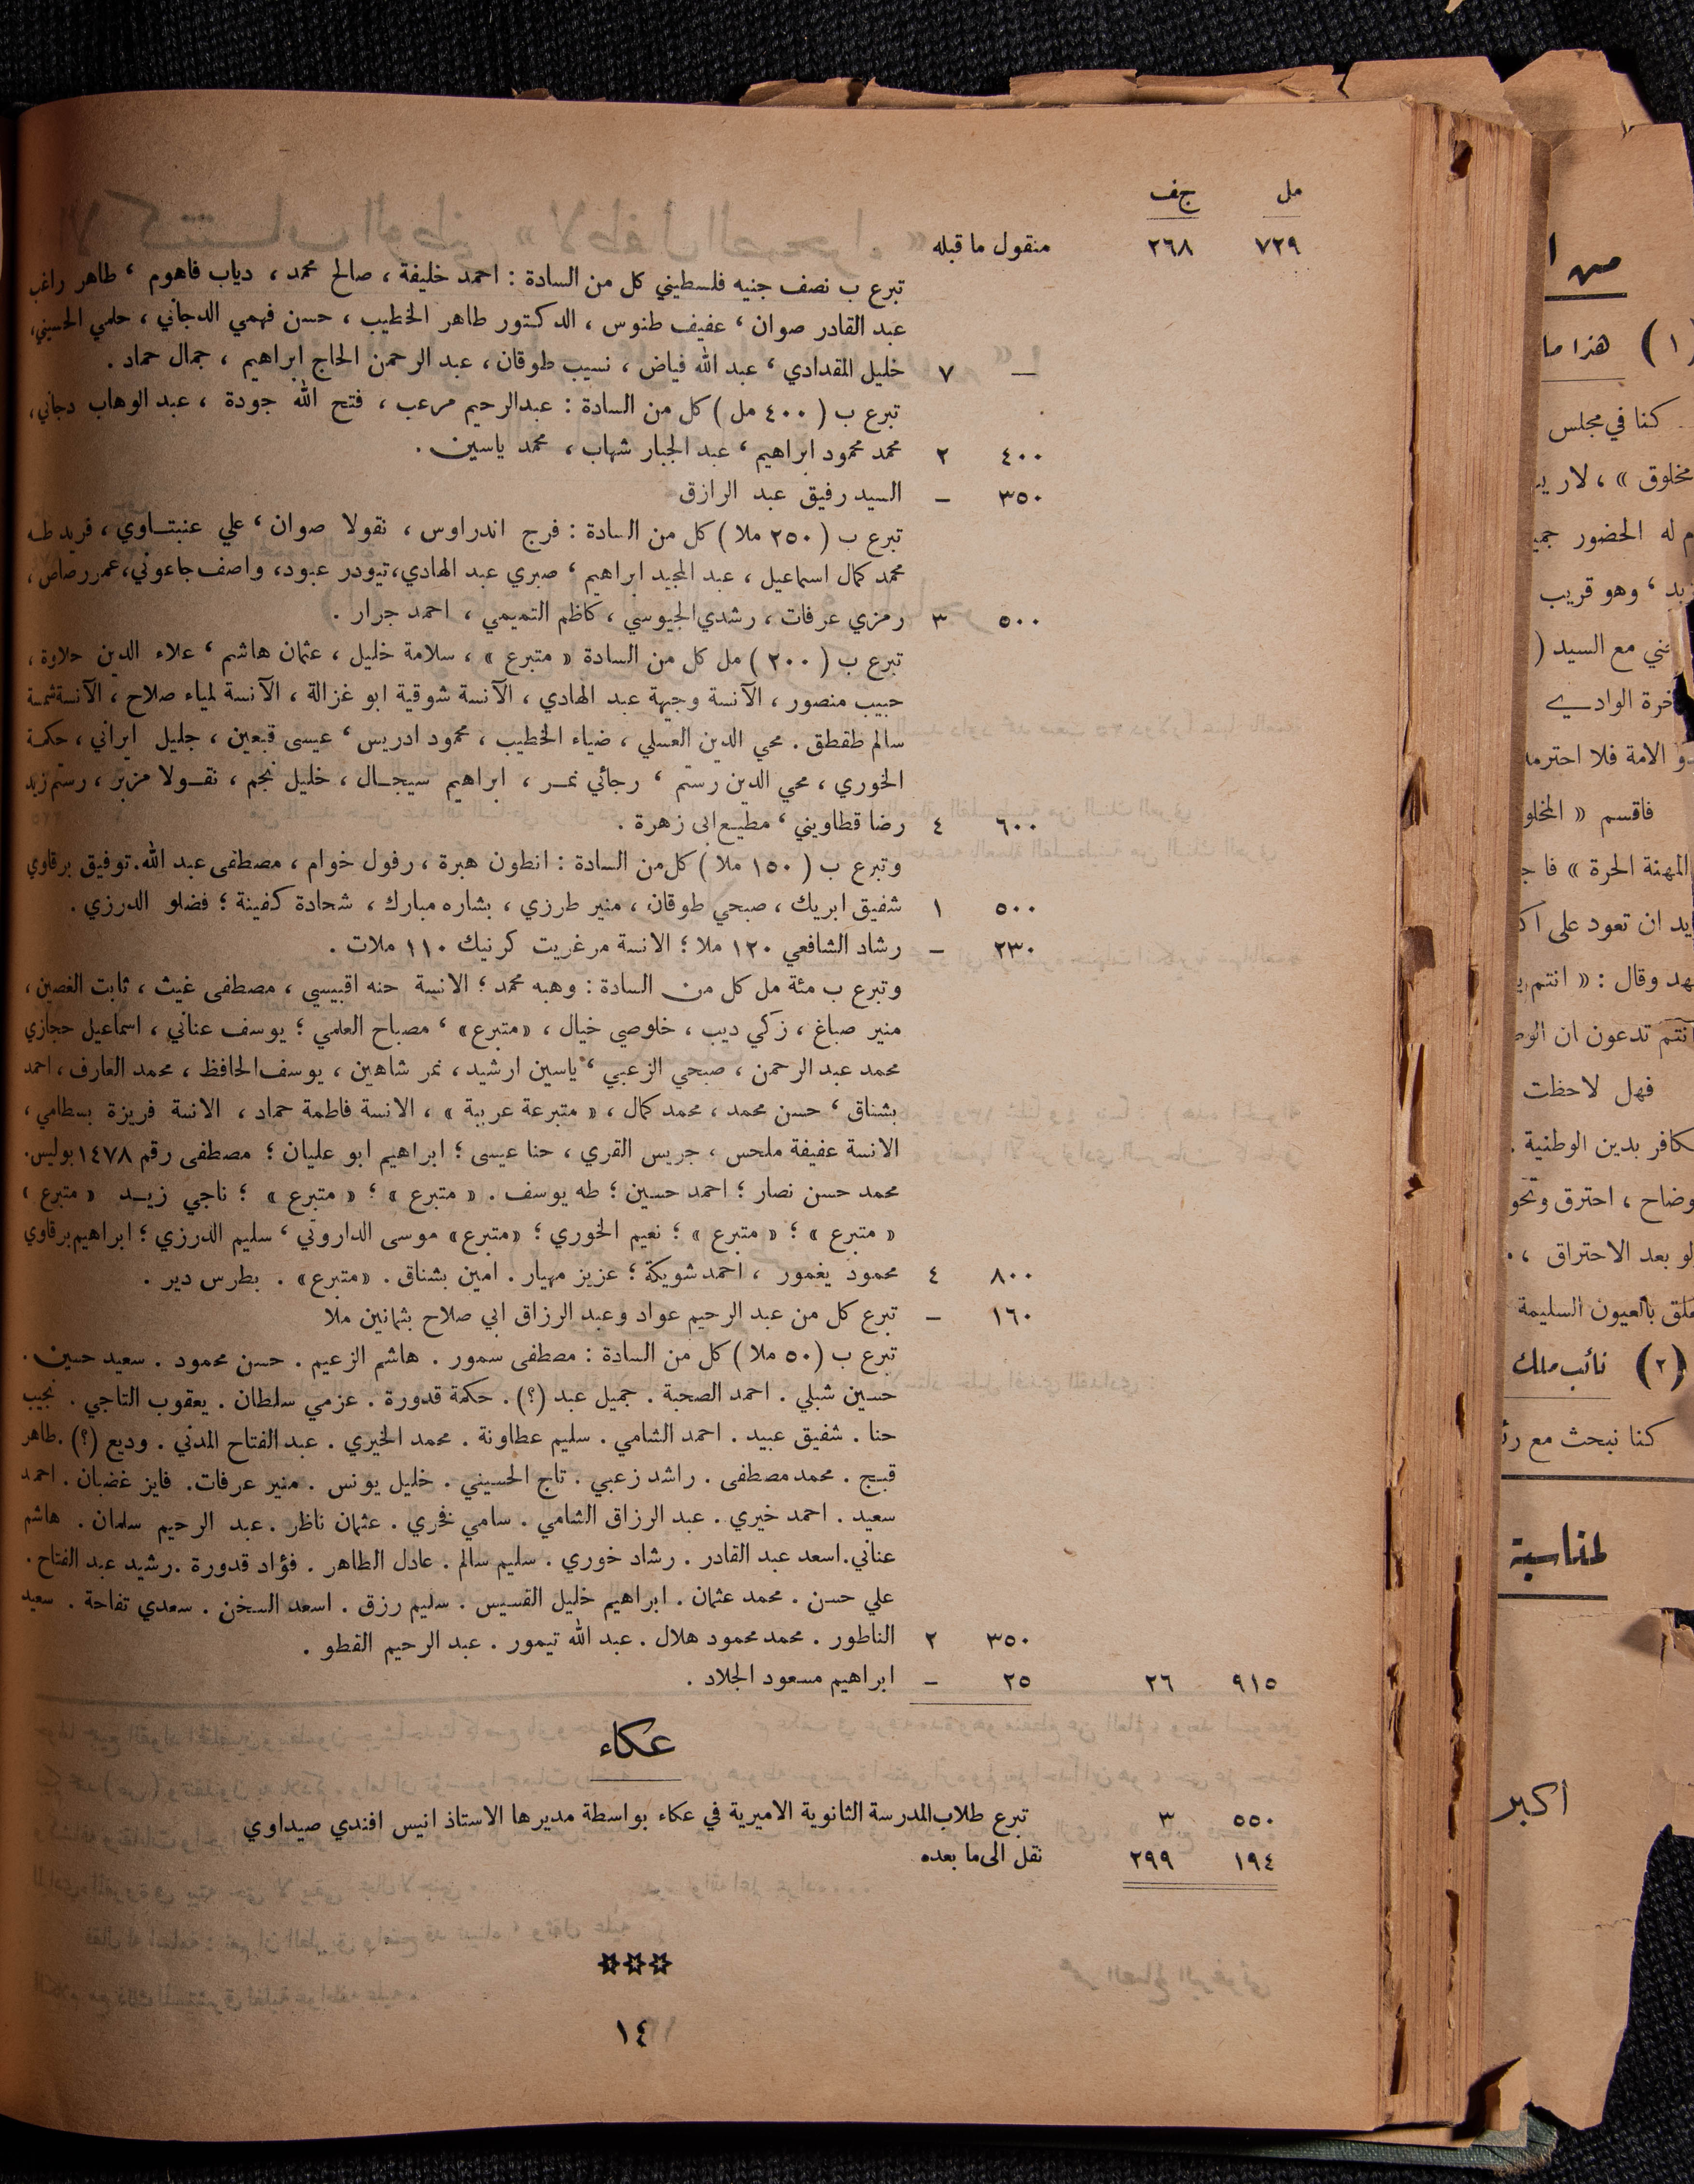 مل ج ف
٧٢٩ ٢٦٨ منقول ما قبله
تبرع ب نصف جنيه فلسطيني كل من السادة : احمد خليفة ، صالح محمد ، دياب فاهوم ، طاهر راغب
عبد القادر صوان ، عفيف طنوس ، الدكتور طاهر الخطيب ، حسن فهمي الدجاني ، حلمي الحسيني،
— ٧ خليل المقدادي ، عبد الله فياض ، نسيب طوقان ، عبد الرحمن الحاج ابراهيم ، جمال حماد .
تبرع ب ( ٤٠٠ مل ) كل من السادة : عبدالرحيم مرعب ، فتح الله جودة ، عبد الوهاب دجاني ،
٤٠٠ ٢ محمد محمود ابراهيم ، عبد الجبار شهاب ، محمد ياسين .
٣٥٠ – السيد رفيق عبد الرازق
تبرع ب ( ٢٥٠ ملا ) كل من السادة : فرج اندراوس ، نقولا صوان ، علي عنبتاوي ، فريد طه
محمد كمال اسماعيل ، عبد المجيد ابراهيم ، صبري عبد الهادي،تيودر عبود، واصف جاعوني،عمر رصاص ،
٥٠٠ ٣ رمزي عرفات ، رشدي الجيوسي ، كاظم التميمي ، احمد جرار .
تبرع ب ( ٢٠٠ ) مل كل من السادة « متبرع » ، سلامة خليل ، عثمان هاشم ، علاء الدين حلاوة ،
حبيب منصور ، الآنسة وجيهة عبد الهادي ، الآنسة شوقية ابو غزالة ، الآنسة لمياء صلاح ، الآنسة شمسة
سالم طقطق . محي الدين العسلي ، ضياء الخطيب ، محمود ادريس ، عيسى قبعين ، جليل ايراني ، حكمة
الخوري ، محي الدين رستم ، رجائي نمر ، ابراهيم سيجال ، خليل نجم ، نقولا مزبر ، رستم زبد
٦٠٠ ٤ رضا قطاويني ، مطيع ابي زهرة .
وتبرع ب ( ١٥٠ ملا ) كل من السادة : انطون هبرة ، رفول خوام ، مصطفى عبد الله . توفيق برقاوي
٥٠٠ ١ شفيق ابريك ، صبحي طوقان ، منير طرزي ، بشاره مبارك ، شحادة كفينة ؛ فضلو الدرزي .
٢٣٠ – رشاد الشافعي ١٢٠ ملا ؛ الانسة مرغريت كرنيك ١١٠ ملات .
وتبرع ب مئة مل كل من السادة : وهبه محمد ؛ الانسة حنه اقبيسي ، مصطفى غيث ، ثابت الغصين ،
منير صباغ ، زكي ديب ، خلوصي خيال ، «متبرع» ، مصباح العلمي ؛ يوسف عناني ، اسماعيل حجازي
محمد عبد الرحمن ، صبحي الزعبي ، ياسين ارشيد ، نمر شاهين ، يوسف الحافظ ، محمد العارف ، احمد
بشناق ، حسن محمد ، محمد كمال ، « متبرعة عربية » ، الانسة فاطمة حماد ، الانسة فريزة بسطامي ،
الانسة عفيفة ملحس ، جريس القري ، حنا عيسى ؛ ابراهيم ابو عليان ؛ مصطفى رقم ١٤٧٨ بوليس.
محمد حسن نصار ؛ احمد حسين ؛ طه يوسف . « متبرع » ؛ « متبرع » ؛ ناجي زيد « متبرع »
« متبرع » ؛ « متبرع » ؛ نعيم الخوري ؛ «متبرع» موسى الداروتي ، سليم الدرزي ؛ ابراهيم برقاوي
٨٠٠ ٤ محمود يغمور ، احمد شويكة ؛ عزيز مهيار . امين بشناق . «متبرع» . بطرس دير .
١٦٠ – تبرع كل من عبد الرحيم عواد وعبد الرزاق ابي صلاح بثمانين ملا
تبرع ب (٥٠ ملا ) كل من السادة : مصطفى سمور . هاشم الزعيم . حسن محمود . سعيد حسين .
حسين شبلي . احمد الصحبة . جميل عبد (؟) . حكمة قدورة . عزمي سلطان . يعقوب التاجي . نجيب
حنا . شفيق عبيد . احمد الشامي . سليم عطاونة . محمد الخيري . عبد الفتاح المدني . وديع (؟) . طاهر
قبج . محمد مصطفى . راشد زعبي . تاج الحسيني . خليل يونس . منير عرفات. فايز غضبان . احمد
سعيد . احمد خيري . عبد الرزاق الشامي . سامي فخري . عثمان ناظر . عبد الرحيم سلمان . هاشم
عناني.اسعد عبد القادر . رشاد خوري . سليم سالم . عادل الظاهر . فؤاد قدورة .رشيد عبد الفتاح .
علي حسن . محمد عثمان . ابراهيم خليل القسيس . سليم رزق . اسعد السخن . سعدي تفاحة . سعيد
٣٥٠ ٢ الناطور . محمد محمود هلال . عبد الله تيمور . عبد الرحيم القطو .
٩١٥ ٢٦ ٢٥ – ابراهيم مسعود الجلاد .
عكاء
٥٥٠ ٣ تبرع طلاب المدرسة الثانوية الاميرية في عكاء بواسطة مديرها الاستاذ انيس افندي صيداوي
١٩٤ ٢٩٩ نقل الى ما بعده
١٤
من ا
(١) هذا ما
كنا في مجلس
مخلوق » ، لا ريب
م له الحضور جمي
زبد ، وهو قريب
ني مع السيد (
خرة الوادي
و الامة فلا احترما
فاقسم « المخلو
المهنة الحرة » فا ج
ايد ان تعود على اك
هد وقال : « انتم ي
انتم تدعون ان الوط
فهل لاحظت
كافر بدين الوطنية .
وضاح ، احترق وتحو
لو بعد الاحتراق ، .
علق بالعيون السليمة
(٢) نائب ملك
كنا نبحث مع رئ
لمناسبة
اكبر